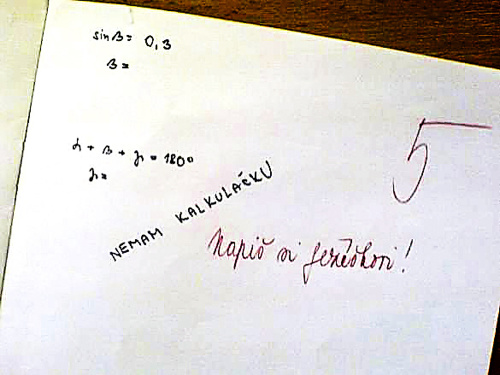 sin β = 0,3
β =
α + β + γ = 180°
γ =
5
NEMAM KALKULAČKU
Napiš si ježíškovi!